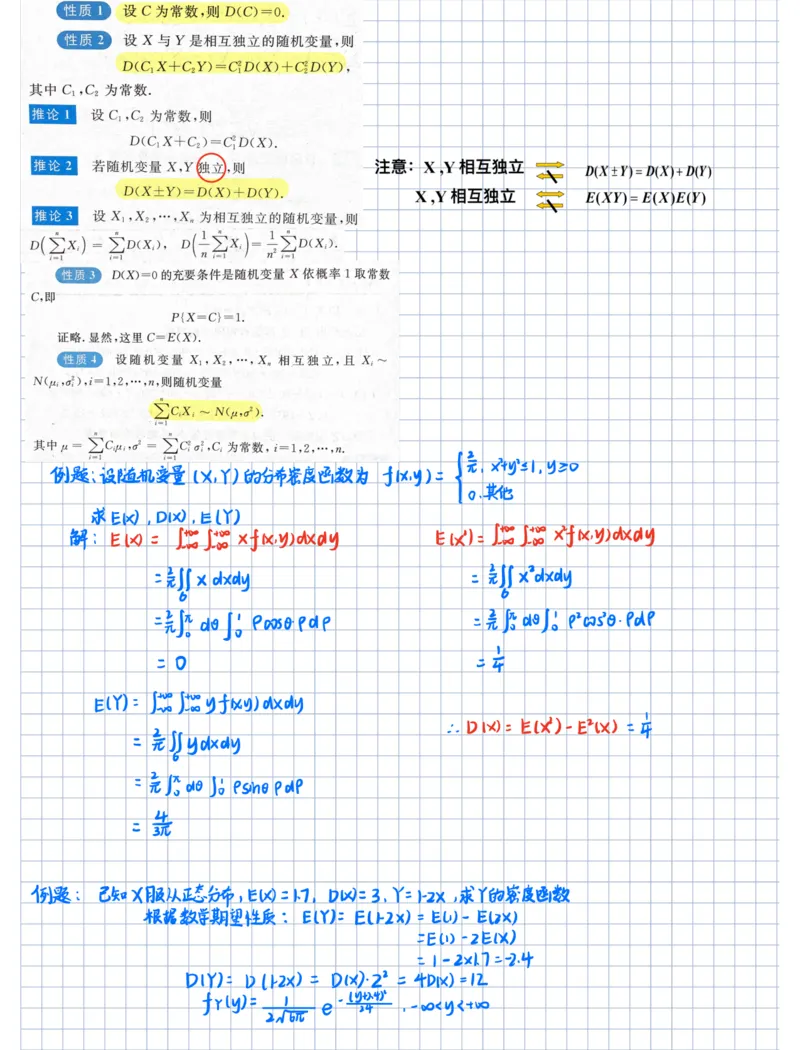 性质 1 设 C 为常数,则 D(C)=0.
性质 2 设 X 与 Y 是相互独立的随机变量,则
D(C₁X+C₂Y)=C₁²D(X)+C₂²D(Y),
其中 C₁,C₂ 为常数.
推论 1 设 C₁,C₂ 为常数,则
D(C₁X+C₂)=C₁²D(X).
推论 2 若随机变量 X,Y 独立,则
D(X±Y)=D(X)+D(Y).
注意：X ,Y 相互独立 D(X±Y)=D(X)+D(Y)
X ,Y 相互独立 E(XY)=E(X)E(Y)
推论 3 设 X₁,X₂,…,Xₙ 为相互独立的随机变量,则
D(∑ᵢ₌₁ⁿXᵢ) = ∑ᵢ₌₁ⁿD(Xᵢ), D(1/n ∑ᵢ₌₁ⁿXᵢ) = 1/n² ∑ᵢ₌₁ⁿD(Xᵢ).
性质 3 D(X)=0 的充要条件是随机变量 X 依概率 1 取常数
C,即
P{X=C}=1.
证略.显然,这里 C=E(X).
性质 4 设随机变量 X₁,X₂,…,Xₙ 相互独立,且 Xᵢ～
N(μᵢ,σᵢ²),i=1,2,…,n,则随机变量
∑ᵢ₌₁ⁿCᵢXᵢ ～ N(μ,σ²).
其中 μ = ∑ᵢ₌₁ⁿCᵢμᵢ,σ² = ∑ᵢ₌₁ⁿCᵢ²σᵢ²,Cᵢ 为常数, i=1,2,…,n.
例题：设随机变量 (X,Y) 的分布密度函数为 f(x,y) = { 2/π, x²+y²≤1, y≥0
0, 其他
求 E(X), D(X), E(Y)
解： E(X) = ∫₋∞⁺∞ ∫₋∞⁺∞ x f(x,y)dxdy
= 2/π ∬_G x dxdy
= 2/π ∫₀^π dθ ∫₀¹ ρcosθ ρdρ
= 0
E(X²) = ∫₋∞⁺∞ ∫₋∞⁺∞ x²f(x,y)dxdy
= 2/π ∬_G x²dxdy
= 2/π ∫₀^π dθ ∫₀¹ ρ²cos²θ·ρdρ
= 1/4
E(Y) = ∫₋∞⁺∞ ∫₋∞⁺∞ y f(x,y)dxdy
= 2/π ∬_G ydxdy
= 2/π ∫₀^π dθ ∫₀¹ ρsinθ ρdρ
= 4/3π
∴ D(X) = E(X²) - E²(X) = 1/4
例题： 已知 X 服从正态分布, E(X) = 1.7, D(X) = 3, Y = 1-2X ,求 Y 的密度函数
根据数学期望性质： E(Y) = E(1-2X) = E(1) - E(2X)
= E(1) - 2E(X)
= 1 - 2×1.7 = -2.4
D(Y) = D(1-2X) = D(X)·2² = 4D(X) = 12
f_Y(y) = 1/(2√6π) e^(-(y+2.4)²/24) , -∞<y<+∞